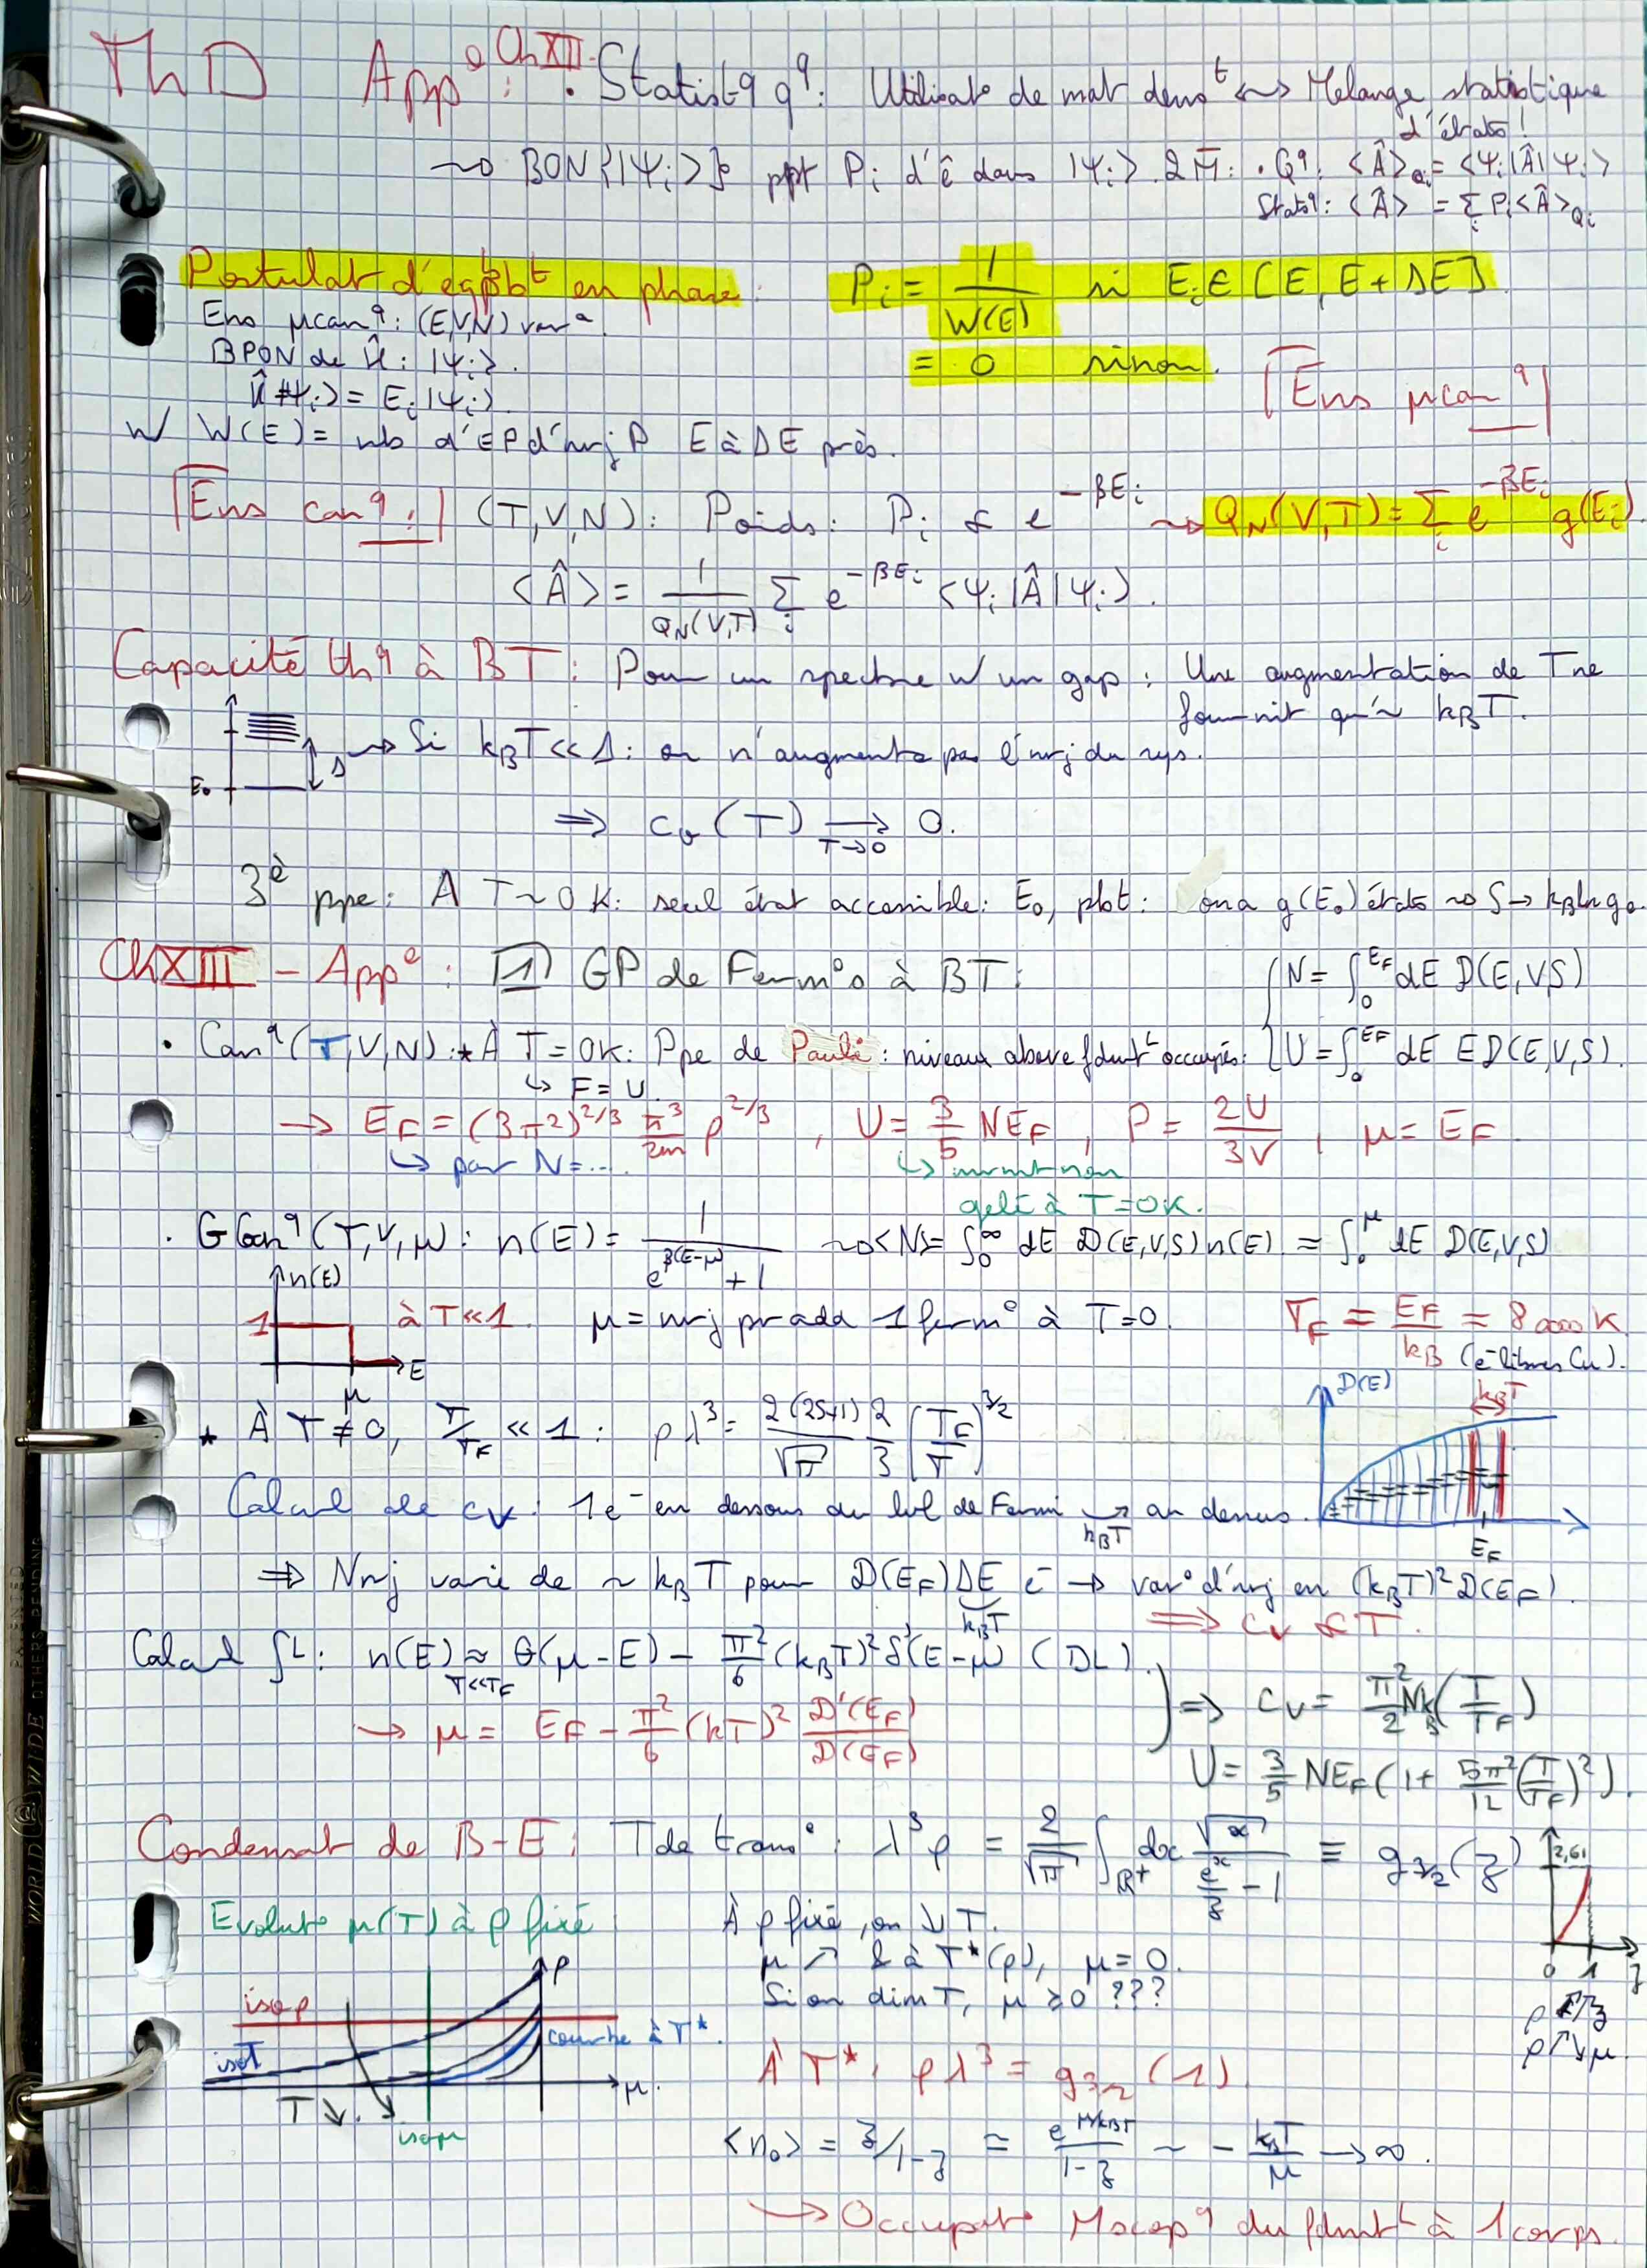 ThD Appᵒ ChXII. : • Statist q qq : Utilisatᵒ de mat densᵗ ↔ Mélange statistique
d'états !
⤳ BON {|Ψi>} ppt Pi d'ê dans |Ψi>. 2 M̄ : • Qq : <Â>Qi = <Ψi|Â|Ψi>
Statq : <Â> = Σi Pi <Â>Qi
Postulat d'éqpbbᵗ en phase : Pi = 1/W(E) si Ei ∈ [E, E + ΔE]
= 0 sinon.
Ens µcanq : (E,V,N) varᵃ
BPON de Ĥ : |Ψi>.
Ĥ |Ψi> = Ei |Ψi>.
Ens µcanq
w/ W(E) = nb d'EP d'nrj P E à ΔE près.
Ens canq : (T,V,N) : Poids : Pi ∝ e^(-βEi) ⤳ QN(V,T) = Σi e^(-βEi) g(Ei)
<Â> = 1/QN(V,T) Σi e^(-βEi) <Ψi|Â|Ψi>.
Capacité thq à BT : Pour un spectre w/ un gap : Une augmentation de T ne
fournit qu'~ kBT.
E0 Δ → Si kBT << 1 : on n'augmente pas l'nrj du sys.
⇒ cv(T) → 0. T→0
3è ppe : A T ~ 0K : seul état accessible : E0, pbt : on a g(E0) états ⤳ S → kB ln g0.
ChXIII - Appᵒ : [1] GP de Fermᵒs à BT :
{ N = ∫0^EF dE D(E,V,S)
• Canq (T,V,N) : ★ À T = 0K : Ppe de Pauli : niveaux above fdmtᴸ occupés : U = ∫0^EF dE E D(E,V,S).
↳ F = U.
→ EF = (3π²)^(2/3) ħ³/2m ρ^(2/3), U = 3/5 NEF, P = 2U/3V, µ = EF.
↳ par N = ...
↳ mvmt non
gelé à T = 0K.
• GCanq (T,V,µ) : n(E) = 1/(e^(β(E-µ)) + 1) ⤳ <N> = ∫0^∞ dE D(E,V,S) n(E) ≈ ∫0^µ dE D(E,V,S)
n(E) 1 µ E
à T << 1. µ = nrj pr add 1 fermᵒ à T = 0.
TF = EF/kB = 8 0000 K
(e⁻ libres Cu).
★ À T ≠ 0, T/TF << 1 : ρλ³ = 2(2S+1)/√π 2/3 (TF/T)^(3/2)
D(E) kBT EF
Calcul de cv : 1e⁻ en dessous du lvl de Fermi → au dessus.
kBT
⇒ Nrj varie de ~ kBT pour D(EF)ΔE e⁻ → varᵒ d'nrj en (kBT)² D(EF).
kBT
⇒ cv ∝ T.
Calcul ∫ᴸ : n(E) ≈ θ(µ - E) - π²/6 (kBT)² δ'(E - µ) (DL).
T<<TF
→ µ = EF - π²/6 (kT)² D'(EF)/D(EF)
) ⇒ cv = π²/2 NkB (T/TF)
U = 3/5 NEF (1 + 5π²/12 (T/TF)²).
Condensat de B-E : T de transᵒ : λ³ρ = 2/√π ∫R+ dx √x/(e^x/z - 1) ≡ g3/2(z)
2,61 0 1 z
Evolutᵒ µ(T) à ρ fixé
À ρ fixé, on ↓ T.
µ ↗ & à T*(ρ), µ = 0.
Si on dim T, µ ≥ 0 ???
ρ ↗ z
ρ ↗ ↘ µ.
isoρ
isoT
ρ
courbe à T*.
µ.
T ↘.
isoµ
À T*, ρλ³ = g3/2(1)
<n0> = z/1-z = e^(µ/kBT)/(1-z) ~ - kBT/µ → ∞.
→ Occupatᵒ Mscopq du fdmtᴸ à 1 corps.